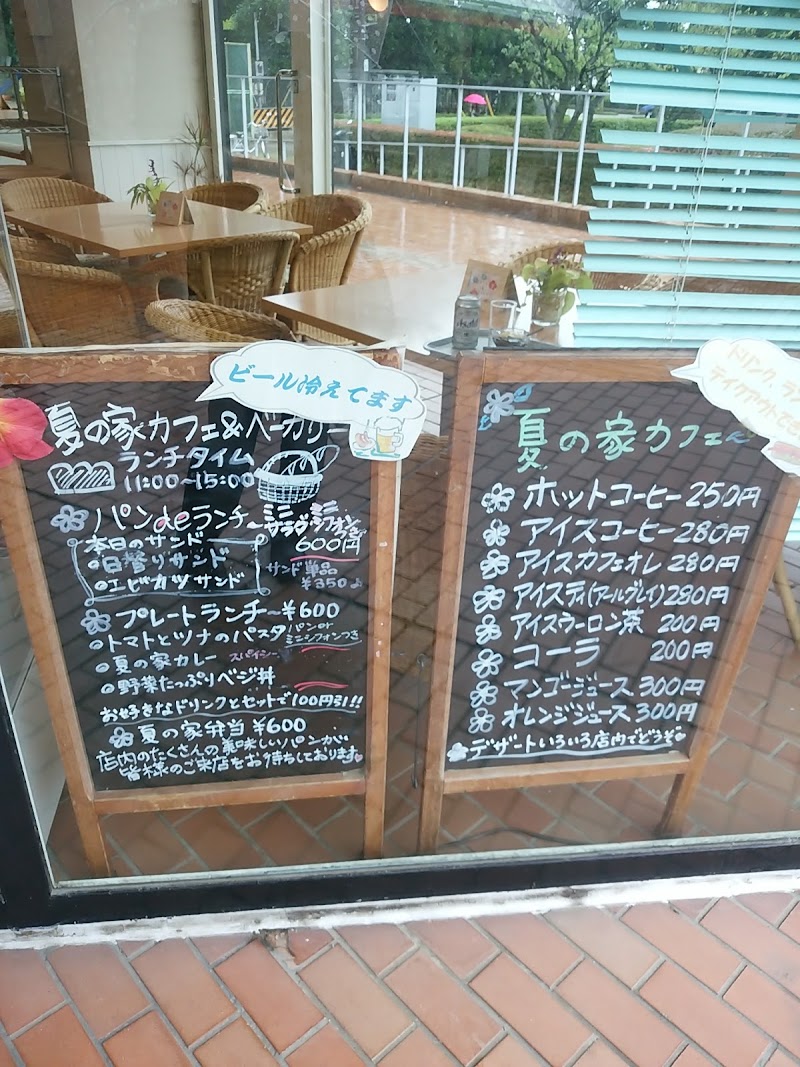 ビール冷えてます
夏の家カフェ&ベーカリー
ランチタイム
11:00~15:00
パンdeランチ~ミニサラダ・ミニシフォンつき
600円
本日のサンド
日替りサンド
エビカツサンド
サンド単品
¥350
プレートランチ~¥600
トマトとツナのパスタ
パンorミニシフォンつき
夏の家カレー スパイシー
野菜たっぷりベジ丼
お好きなドリンクとセットで100円引!!
夏の家弁当 ¥600
店内のたくさんの美味しいパンが
皆様のご来店をお待ちしております
ドリンク、
テイクアウトでき
夏の家カフェ
ホットコーヒー 250円
アイスコーヒー 280円
アイスカフェオレ 280円
アイスティ(アールグレイ) 280円
アイスウーロン茶 200円
コーラ 200円
マンゴージュース 300円
オレンジジュース 300円
デザートいろいろ店内でどうぞ